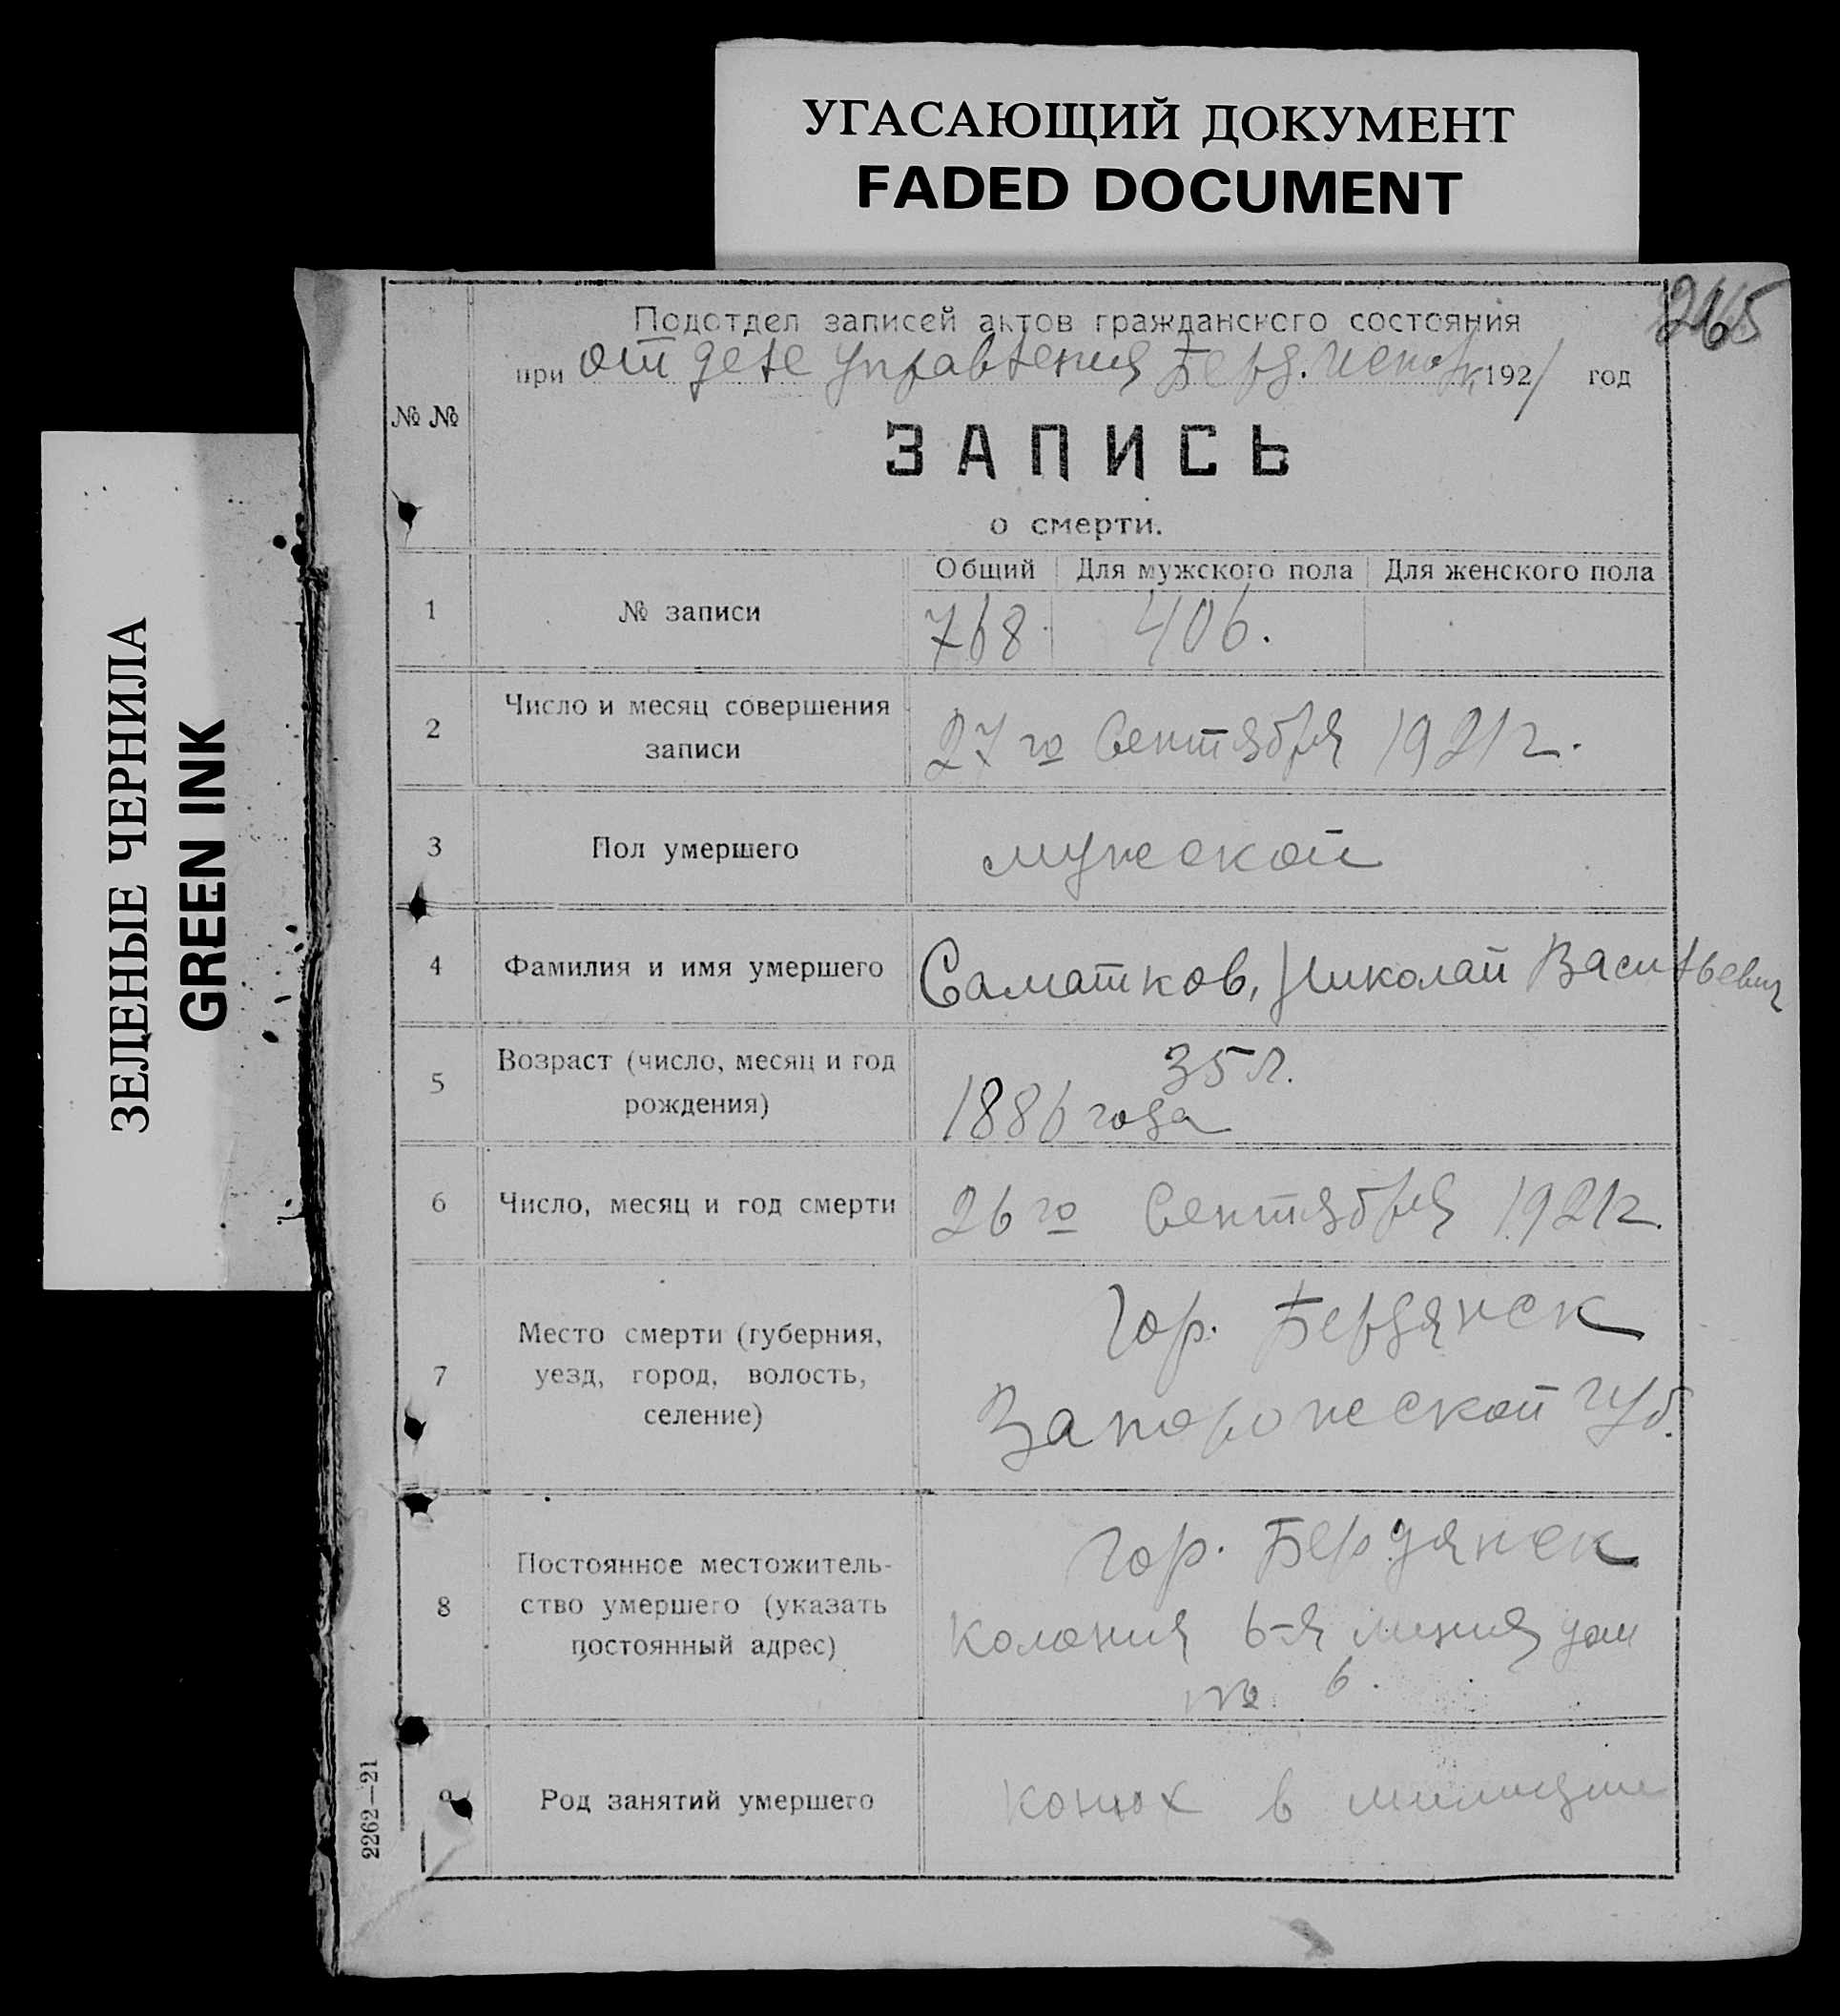 УГАСАЮЩИЙ ДОКУМЕНТ
FADED DOCUMENT
ЗЕЛЕНЫЕ ЧЕРНИЛА
GREEN INK
265
Подотдел записей актов гражданского состояния
при отделе Управления Берд. Исполк. 1921 год
№ №
ЗАПИСЬ
о смерти.
Общий Для мужского пола Для женского пола
1 № записи 768. 406.
2 Число и месяц совершения
записи
27го Сентября 1921 г.
3 Пол умершего мужской
4 Фамилия и имя умершего Саматков, Николай Васильевич
5 Возраст (число, месяц и год
рождения)
35 л.
1886 года
6 Число, месяц и год смерти 26го Сентября 1921 г.
7 Место смерти (губерния,
уезд, город, волость,
селение)
Гор. Бердянск
Запорожской губ.
8 Постоянное местожитель-
ство умершего (указать
постоянный адрес)
гор. Бердянск
Колония 6-я линия дом
№ 6.
9 Род занятий умершего конюх в милиции
2262—21